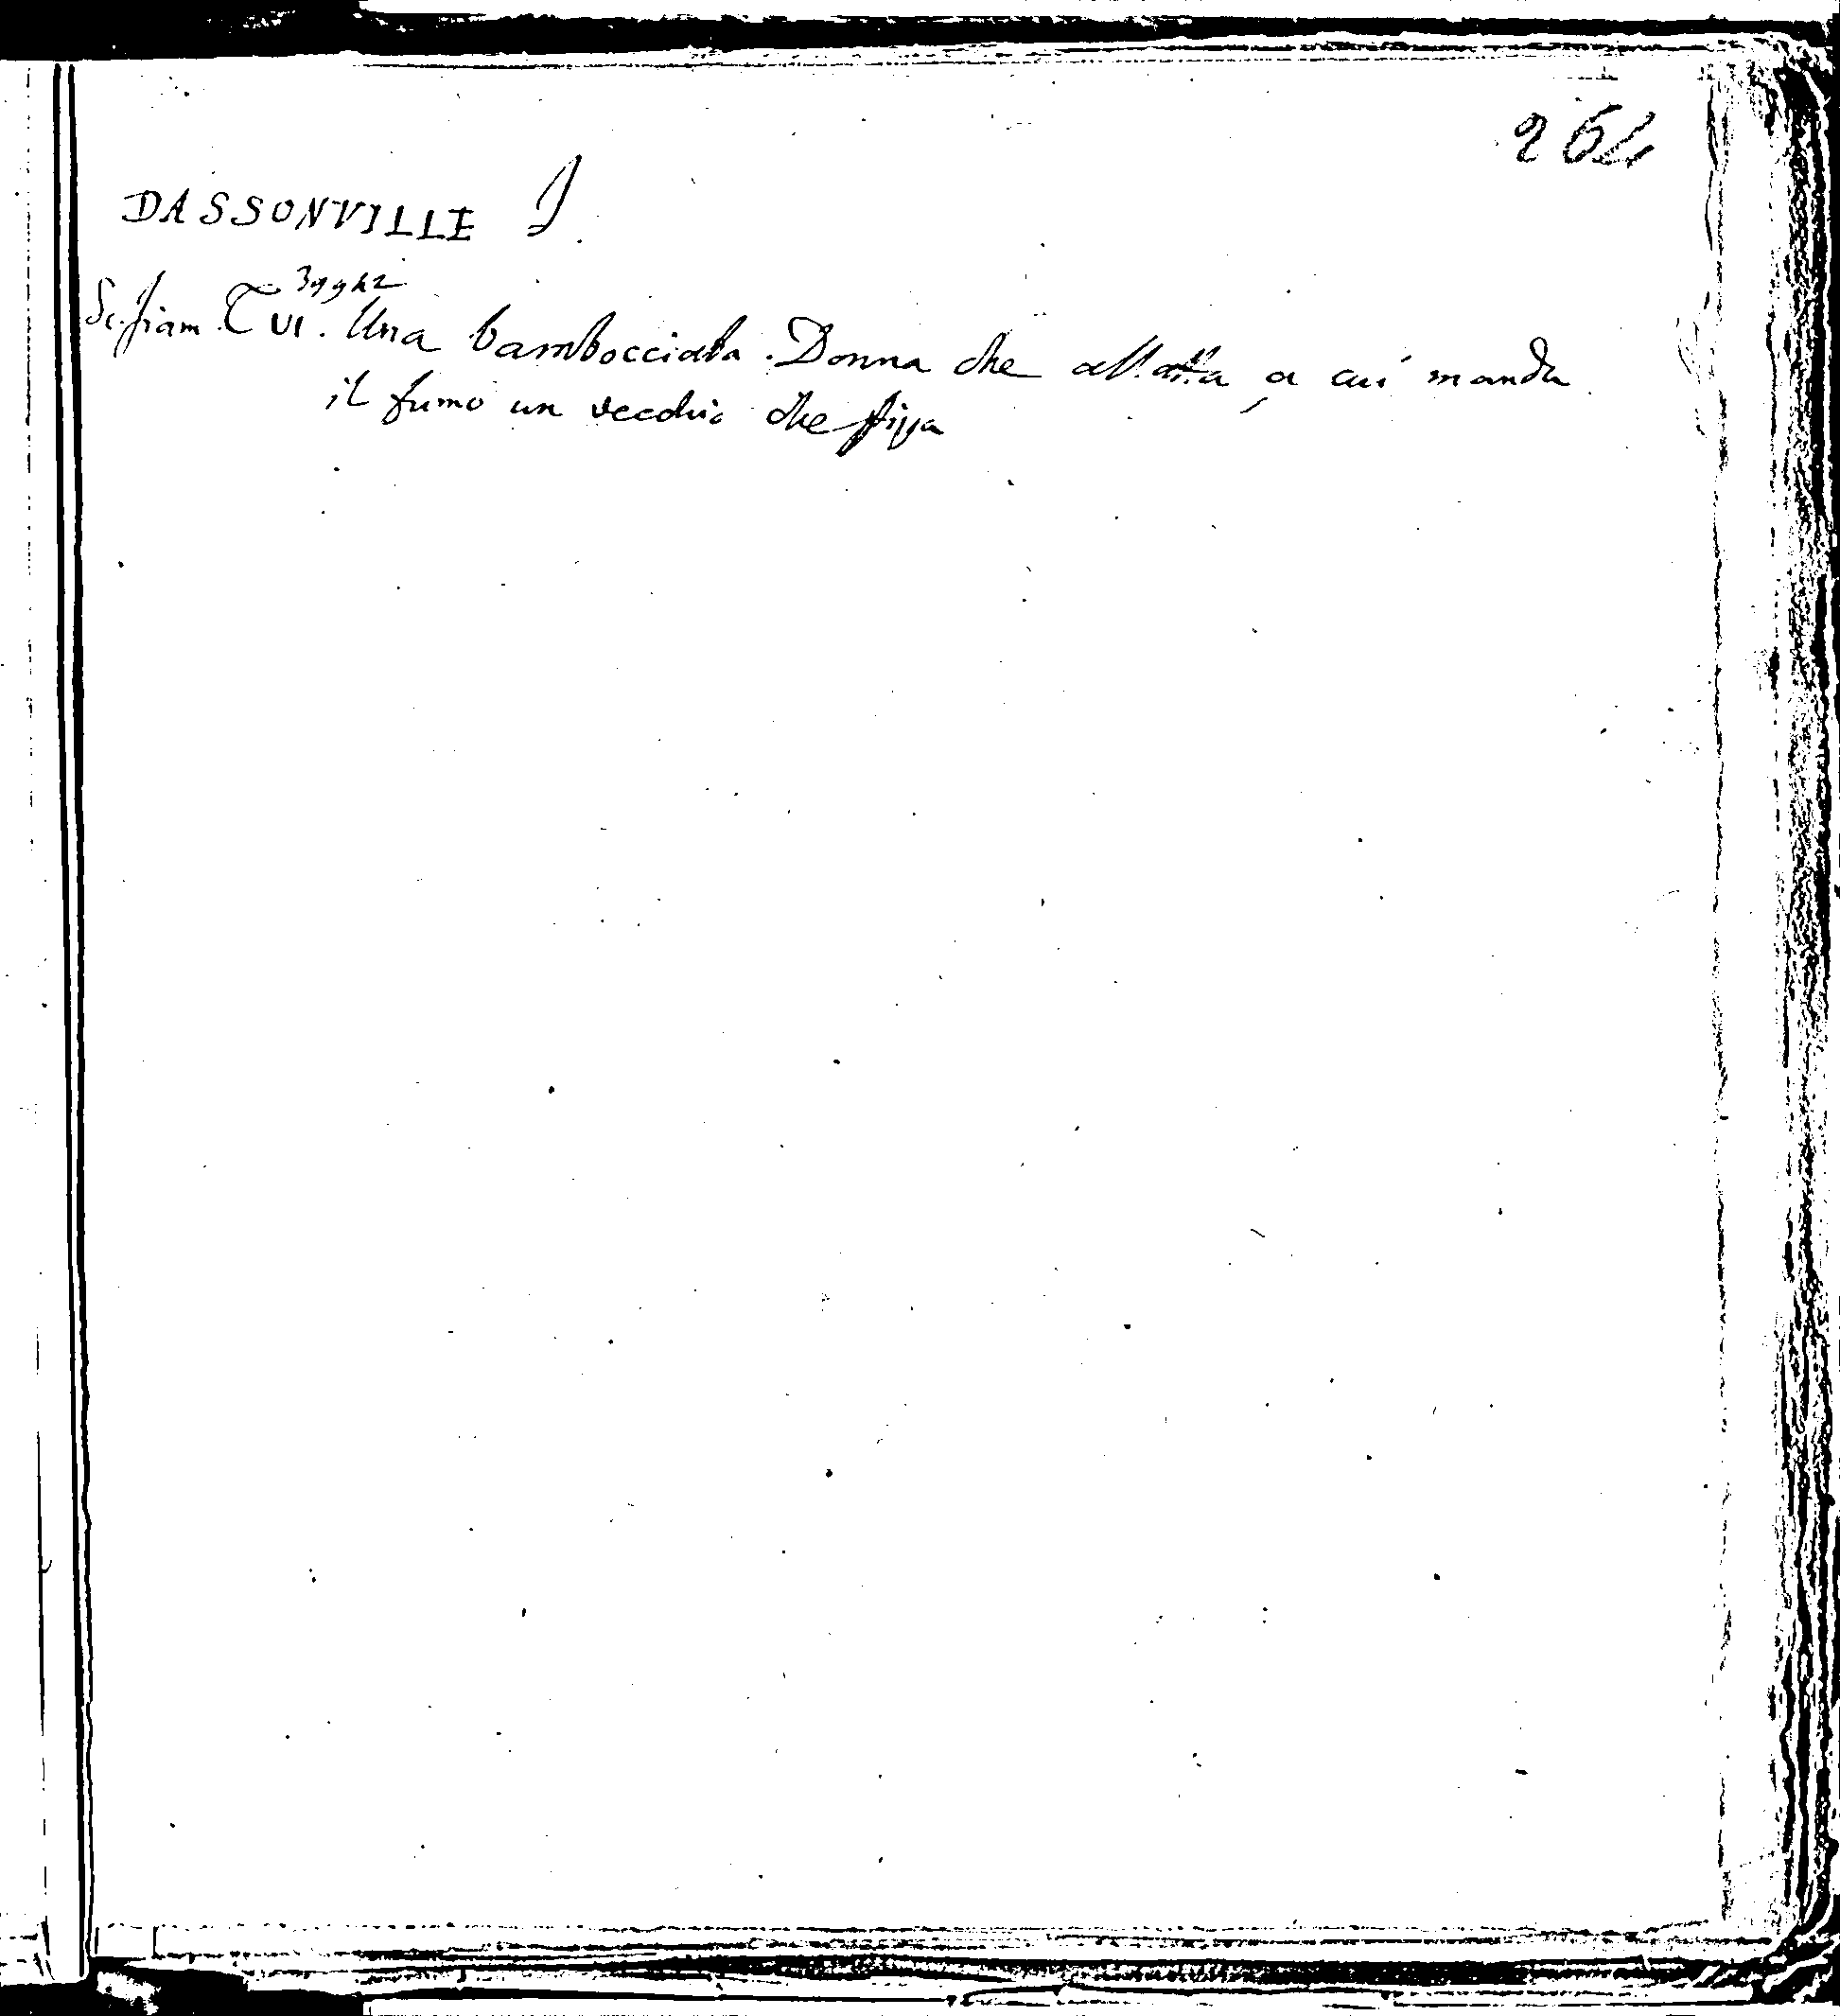 264
DASSONVILLE J.
Sc. fiam. T VI. Una bambocciata. Donna che allatta, a cui manda
il fumo un vecchio che pippa